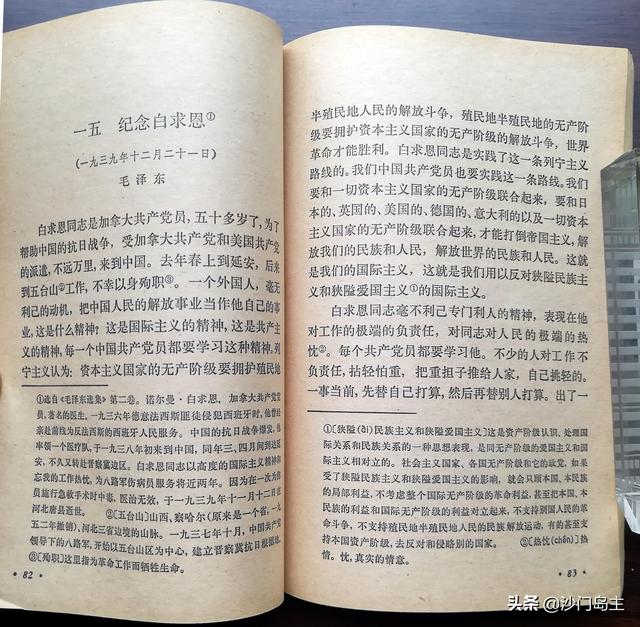 一五 纪念白求恩①
(一九三九年十二月二十一日)
毛泽东
白求恩同志是加拿大共产党员，五十多岁了，为了
帮助中国的抗日战争，受加拿大共产党和美国共产党
的派遣，不远万里，来到中国。去年春上到延安，后来
到五台山②工作，不幸以身殉职③。一个外国人，毫无
利己的动机，把中国人民的解放事业当作他自己的事
业，这是什么精神？这是国际主义的精神，这是共产主
义的精神，每一个中国共产党员都要学习这种精神。列
宁主义认为：资本主义国家的无产阶级要拥护殖民地
①选自《毛泽东选集》第二卷。诺尔曼·白求恩，加拿大共产党
员，著名的医生。一九三六年德意法西斯匪徒侵犯西班牙时，他曾经
亲赴前线为反法西斯的西班牙人民服务。中国的抗日战争爆发，他
率领一个医疗队，于一九三八年初来到中国，同年三、四月间到达延
安，不久又转赴晋察冀边区。白求恩同志以高度的国际主义精神和
忘我的工作热忱，为八路军伤病员服务将近两年。因为在一次为伤
员施行急救手术时中毒，医治无效，于一九三九年十一月十二日在
河北唐县逝世。 ②[五台山]山西、察哈尔(原来是一个省，一九
五二年撤销)、河北三省边境的山脉。一九三七年十月，中国共产党
领导下的八路军，开始以五台山区为中心，建立晋察冀抗日根据地。
③[殉职]这里指为革命工作而牺牲生命。
·82·
半殖民地人民的解放斗争，殖民地半殖民地的无产阶
级要拥护资本主义国家的无产阶级的解放斗争，世界
革命才能胜利。白求恩同志是实践了这一条列宁主义
路线的。我们中国共产党员也要实践这一条路线。我们
要和一切资本主义国家的无产阶级联合起来，要和日
本的、英国的、美国的、德国的、意大利的以及一切资本
主义国家的无产阶级联合起来，才能打倒帝国主义，解
放我们的民族和人民，解放世界的民族和人民。这就
是我们的国际主义，这就是我们用以反对狭隘民族主
义和狭隘爱国主义①的国际主义。
白求恩同志毫不利己专门利人的精神，表现在他
对工作的极端的负责任，对同志对人民的极端的热
忱②。每个共产党员都要学习他。不少的人对工作不
负责任，拈轻怕重，把重担子推给人家，自己挑轻的。
一事当前，先替自己打算，然后再替别人打算。出了一
①[狭隘(ài)民族主义和狭隘爱国主义]这是资产阶级认识、处理国
际关系和民族关系的一种思想表现，是同无产阶级的爱国主义和国
际主义相对立的。社会主义国家、各国无产阶级和它的政党，如果
受了狭隘民族主义和狭隘爱国主义的影响，就会只顾本国、本民族
的局部利益，不考虑整个国际无产阶级的革命利益，甚至把本国、本
民族的利益和国际无产阶级的利益对立起来，不支持别国人民的革
命斗争，不支持殖民地半殖民地人民的民族解放运动，有的甚至支
持本国资产阶级，去反对和侵略别的国家。 ②[热忱(chén)]热
情。忱，真实的情意。
·83·
头条 @沙门岛主